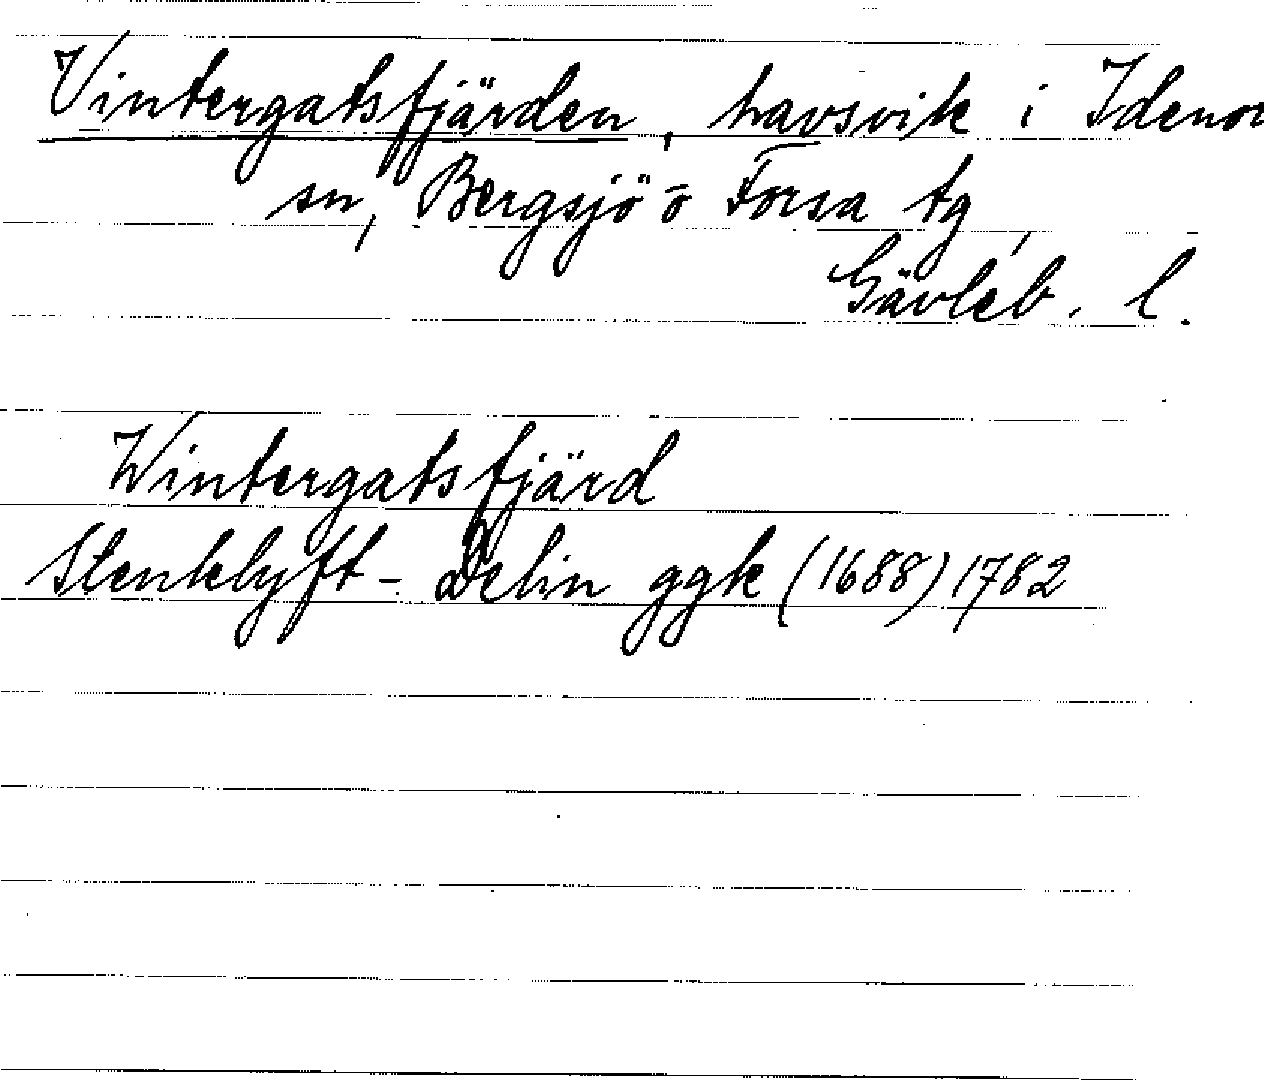 Vintergatsfjärden, havsvik i Idenor
sn, Bergsjö o Forsa tg,
Gävleb. l.
Wintergatsfjärd
Stenklyft - Delin ggk (1688) 1782